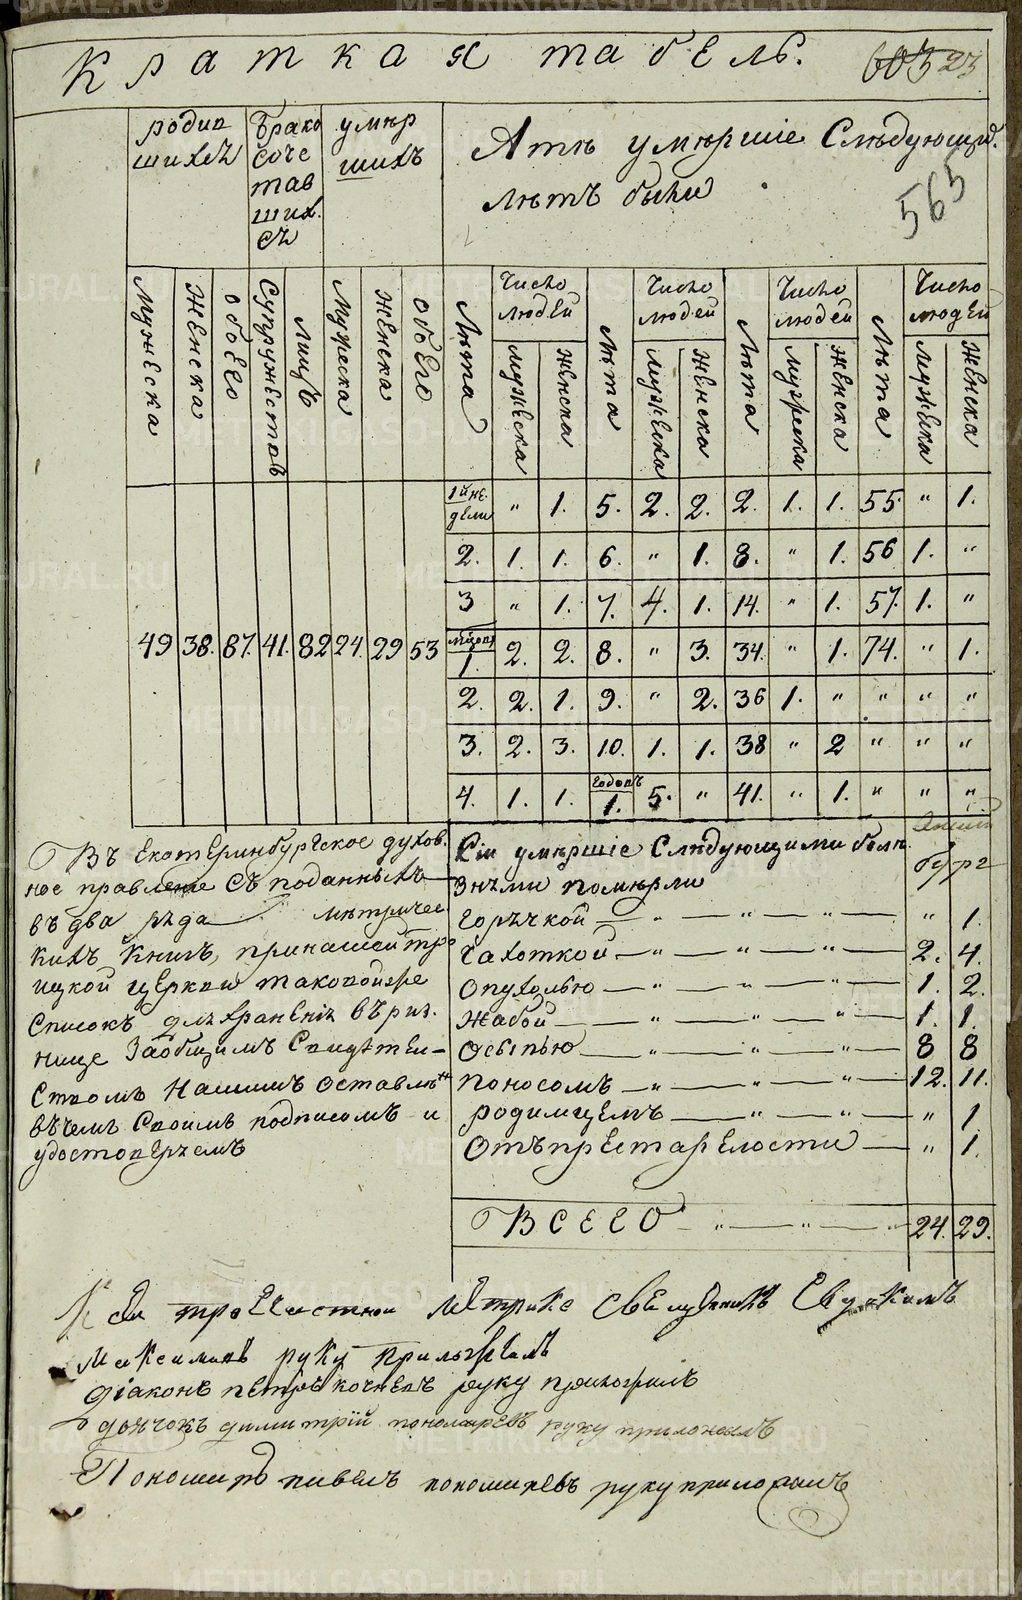 Краткая табель. 603 23
565
родив
шихсѧ
Брако
соче
тав
ших.
сѧ
умер
шихъ
А тѣ умершіе Слѣдующи.
лѣтъ были
Мужеска
Женска
обоего
Супружествъ
Лицъ
Мужеска
Женска
обоего
Лѣта
Число людей
Мужеска
женска
Лѣта
Число людей
Мужеска
женска
Лѣта
Число людей
Мужеска
женска
Лѣта
Число людей
Мужеска
женска
1й не дели „ 1. 5. 2. 2. 2. 1. 1. 55 „ 1.
2. 1. 1. 6. „ 1. 8. „ 1. 56 1. „
3 „ 1. 7. 4. 1. 14. „ 1. 57. 1. „
49 38. 87. 41. 82 24. 29 53 1. 2. 2. 8. „ 3. 34. „ 1. 74. „ 1.
2. 2. 1. 9. „ 2. 36 1. „ „ „ „
3. 2. 3. 10. 1. 1. 38 „ 2 „ „ „
4. 1. 1. годовъ 1. 5. „ 41. „ 1. „ „ „
Въ Екатеринбургское духов.
ное правление Съ поданныхъ
въ два ряда метричес
кихъ Книгъ, при нашей тро
ицкой церкви таковой же
Списокъ для хранения въ риз.
нице За общимъ Свидѣтел-
Ством Нашимъ оставленъ
въ чемъ Своимъ подписомъ и
удостоверяемъ
Сіи умершіе Слѣдующими боле
знѧми померли
бург
Горячкой — „ — „ — „ — „ 1.
Чахоткой — „ — „ — „ — 2. 4.
Опухолью — „ — „ — „ — 1. 2.
Жабой — „ — „ — „ — 1. 1.
Осыпью — „ — „ — „ — 8 8
поносомъ — „ — „ — „ — 12. 11.
родимцемъ — „ — „ — „ 1
Отъ престарелости — „ 1.
ВСЕГО — „ — „ — „ 24. 29.
К сей троечастной метрике Священникъ Евдокимъ
Максимовъ руку приложилъ
діаконъ петръ кочневъ руку приложилъ
дьячокъ димитрій пономаревъ руку приложилъ
Пономарь павелъ пономаревъ руку приложилъ
METRIKI.GASO-URAL.RU